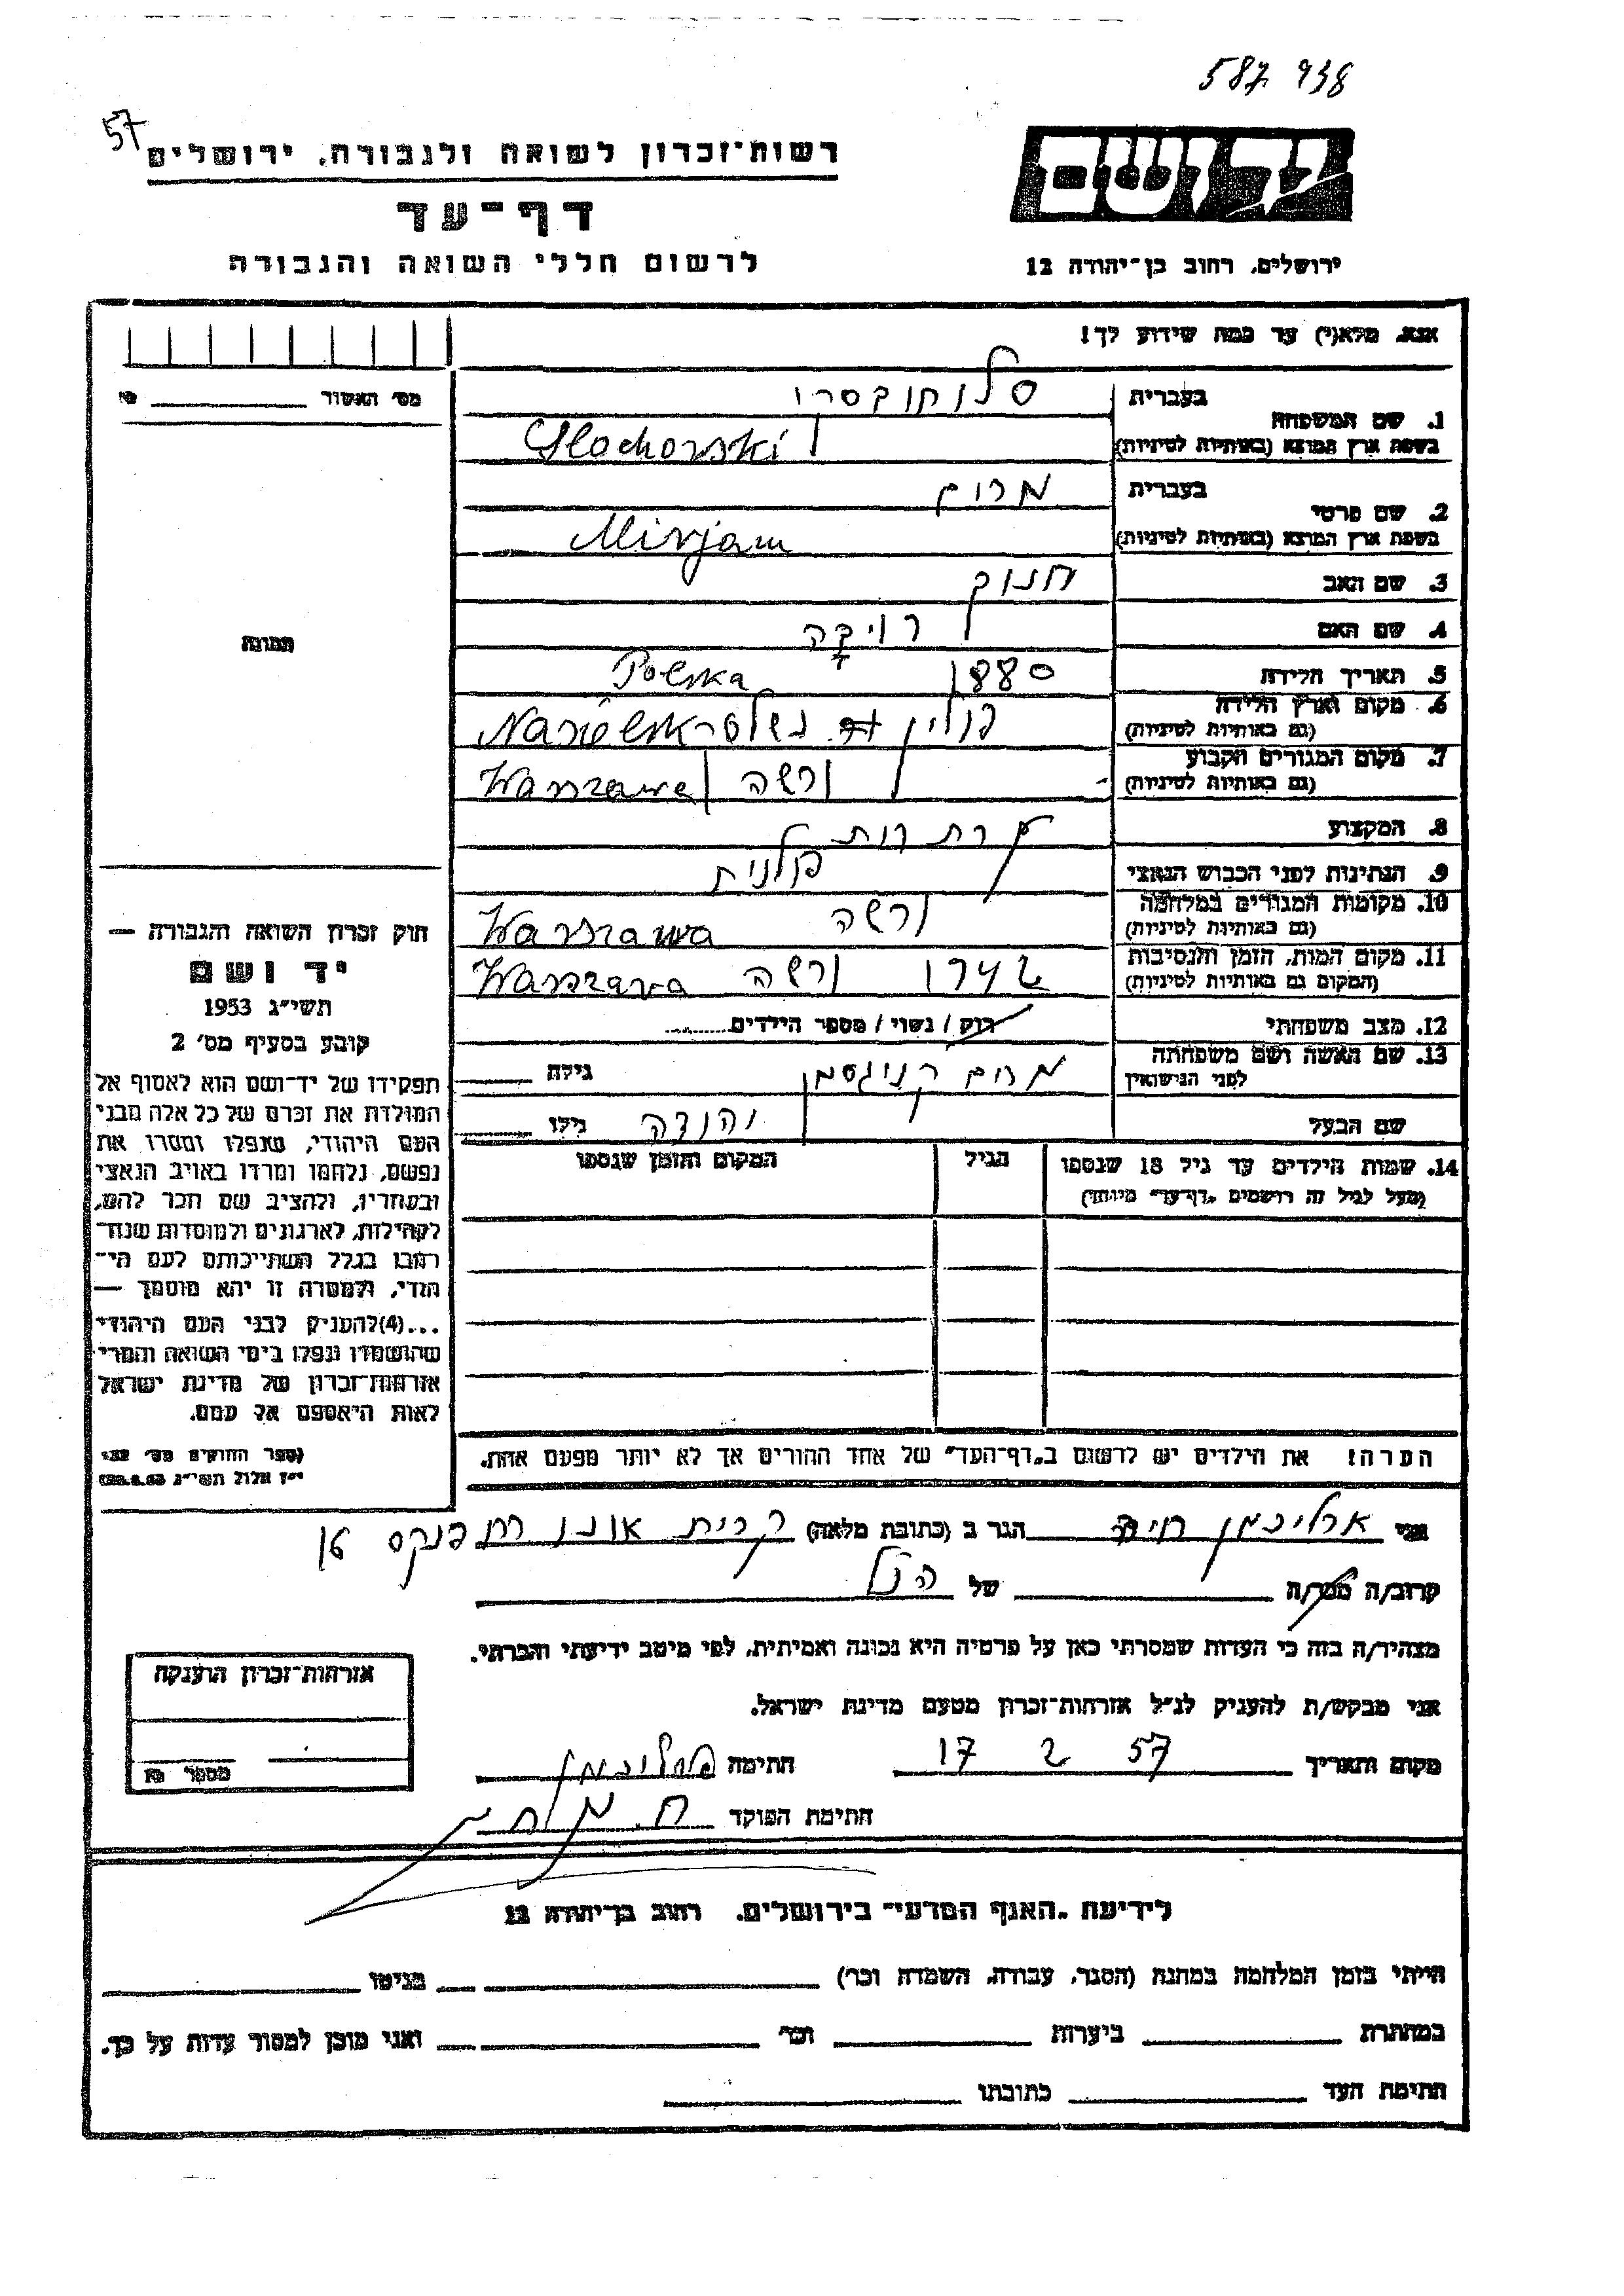 587 938
57
רשות־זכרון לשואה ולגבורה, ירושלים
דף־עד
לרשום חללי השואה והגבורה
יד ושם
ירושלים, רחוב בן־יהודה 12
אנא, מלא(י) עד כמה שידוע לך!
מס׳ האשור
בעברית
1. שם המשפחה
בשפת ארץ המוצא (באותיות לטיניות)
Slochowski
בעברית מרים
2. שם פרטי
בשפת ארץ המוצא (באותיות לטיניות) Mirjam
3. שם האב חנוך
4. שם האם
5. תאריך הלידה 1880 Polska
6. מקום וארץ הלידה פולין
(גם באותיות לטיניות)
7. מקום המגורים הקבוע ורשה Warszawa
(גם באותיות לטיניות)
8. המקצוע
9. הנתינות לפני הכבוש הנאצי פולנית
10. מקומות המגורים במלחמה ורשה Warszawa
(גם באותיות לטיניות)
11. מקום המות, הזמן והנסיבות 1942 ורשה Warszawa
(המקום גם באותיות לטיניות)
12. מצב משפחתי רוק / נשוי / מספר הילדים
13. שם האשה ושם משפחתה מרים גילה
לפני הנישואין
שם הבעל יהודה גילו
14. שמות הילדים עד גיל 18 שנספו הגיל המקום והזמן שנספו
(מעל לגיל זה רושמים „דף־עד״ מיוחד)
הערה! את הילדים יש לרשום ב„דף־העד״ של אחד ההורים אך לא יותר מפעם אחת.
תמונה
חוק זכרון השואה והגבורה —
יד ושם
תשי״ג 1953
קובע בסעיף מס׳ 2
תפקידו של יד־ושם הוא לאסוף אל
המולדת את זכרם של כל אלה מבני
העם היהודי, שנפלו ומסרו את
נפשם, נלחמו ומרדו באויב הנאצי
ובעוזריו, ולהציב שם וזכר להם,
לקהילות, לארגונים ולמוסדות שנח־
רבו בגלל השתייכותם לעם הי־
הודי, ולמטרה זו יהא מוסמך —
...(4)להעניק לבני העם היהודי
שהושמדו ונפלו בימי השואה והמרי
אזרחות־זכרון של מדינת ישראל
לאות היאספם אל עמם.
(ספר החוקים מס׳ 132
י״ז אלול תשי״ג 28.8.53)
אני חיה הגר ב (כתובת מלאה) קרית אונו
קרוב/ה מכר/ה של הנ״ל
מצהיר/ה בזה כי העדות שמסרתי כאן על פרטיה היא נכונה ואמיתית, לפי מיטב ידיעתי והכרתי.
אני מבקש/ת להעניק לנ״ל אזרחות־זכרון מטעם מדינת ישראל.
מקום ותאריך 17 2 57 חתימה
חתימת הפוקד
אזרחות־זכרון הוענקה
מספר
לידיעת „האגף המדעי״ בירושלים, רחוב בן־יהודה 12
הייתי בזמן המלחמה במחנה (הסגר, עבודה, השמדה וכו׳) בגיטו
במחתרת ביערות וכו׳ ואני מוכן למסור עדות על כך.
חתימת העד כתובתו